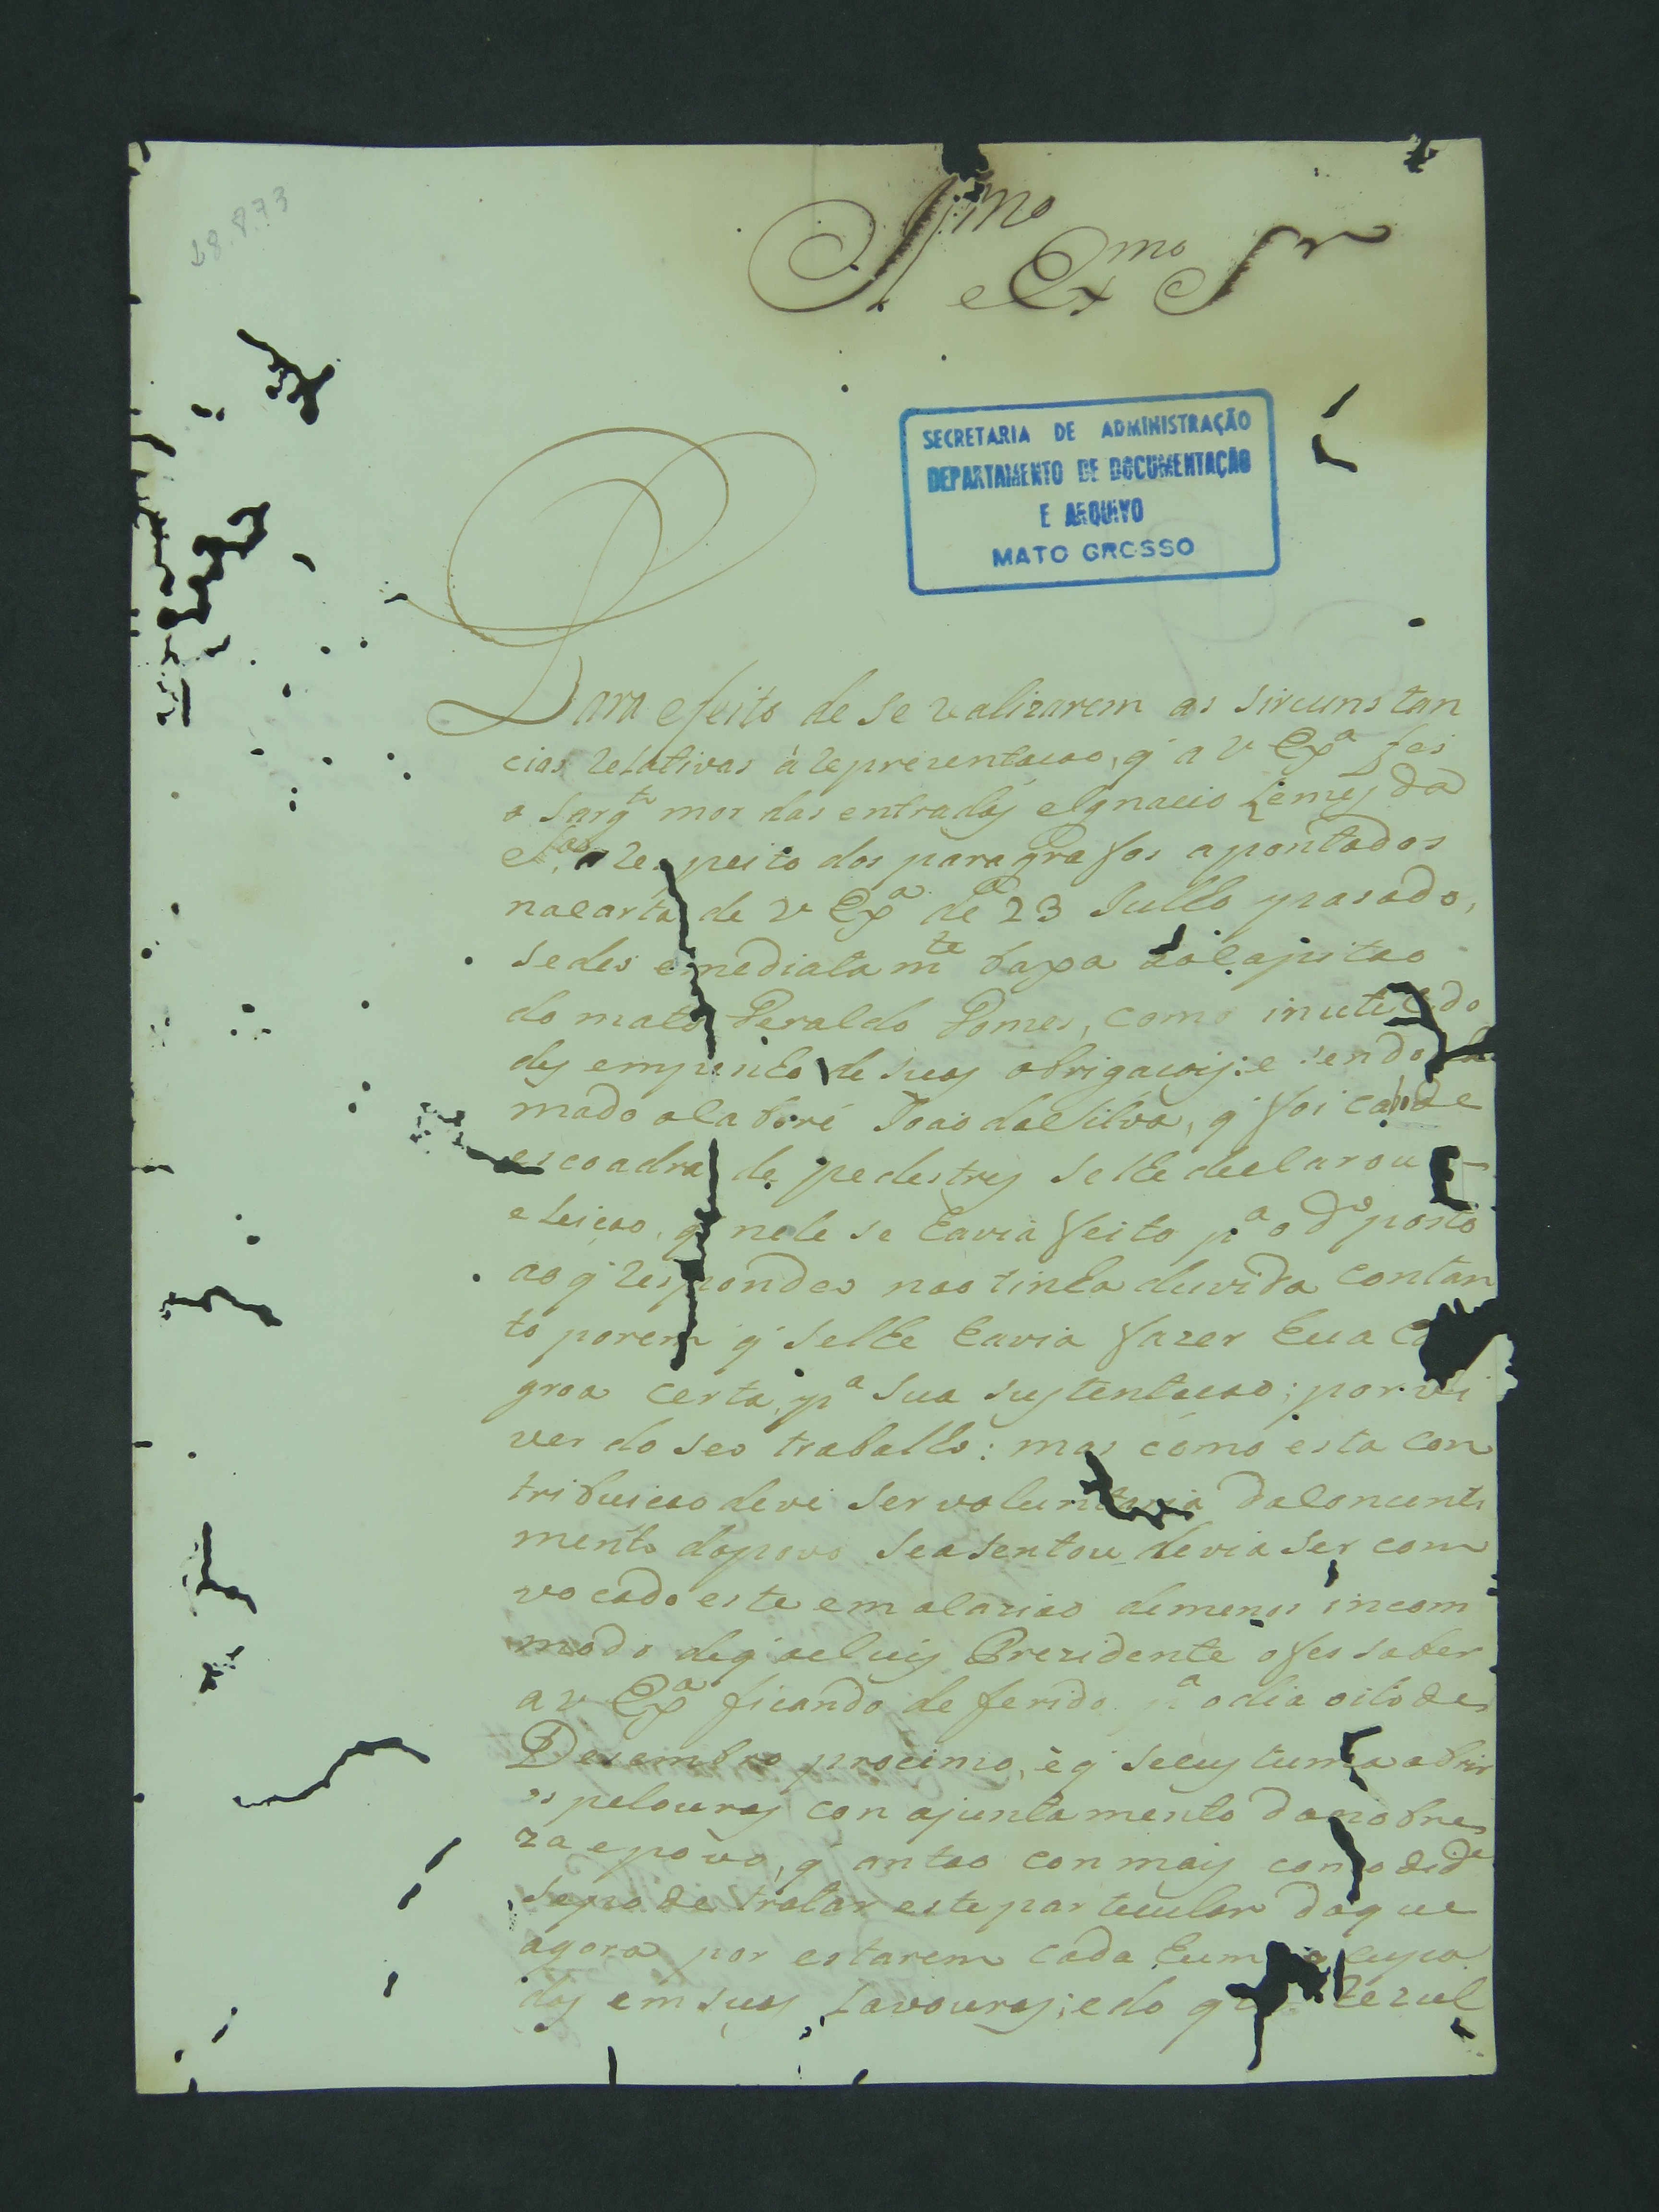 18.8.73
Illmo
e Exmo Snr
SECRETARIA DE ADMINISTRAÇÃO
DEPARTAMENTO DE DOCUMENTAÇÃO
E ARQUIVO
MATO GROSSO
Para efeito de se realizarem as sircunstan
cias relativas á reprezentacao, q' a V Exª fes
o Sargto mor das entradas e Ignacio Lemes da
a respeito dos paragrafos apontados
na carta de V Exª de 23 Julho pasado,
se deo emediatamte baxa ao capitao
do mato Peraldo Gomes, como
de suas obrigacois: e sendo
mado Joao da Silva, q' foi cabo de
escoadra de pedestres se lhe declarou
eleicao, q' nele se havia feito pª o do posto
ao q' respondeo nao tinha duvida contan
to porem q' se lhe havia fazer hua
groa certa, pª sua sustentacao; por vi
ver do seo trabalho: mas como esta con
tribuicao deve ser voluntaria
mento do povo se asentou devia ser com
vocado este em de menos incom
modo de q' o Prezidente o fes saber
a V Exª ficando deferido pª o dia oito de
Desembro procimo, e q' se custuma abrir
os pelouros con ajuntamento da nobre
za e povo, q' antao con mais comodide
se pode tratar este particular do que
agora por estarem cada hum ocupa
dos em suas Lavouras; e do que Rezul